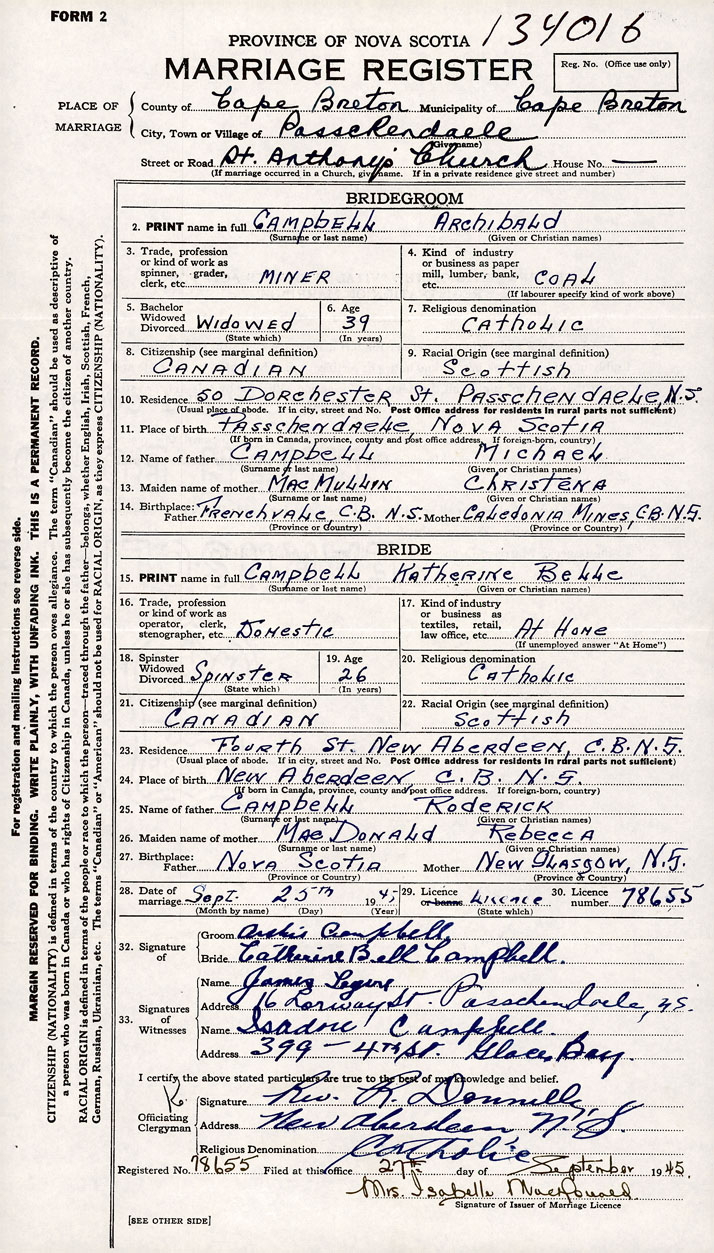 FORM 2
PROVINCE OF NOVA SCOTIA 134016
MARRIAGE REGISTER
Reg. No. (Office use only)
PLACE OF MARRIAGE
County of Cape Breton Municipality of Cape Breton
City, Town or Village of Passchendaele
(Give name)
Street or Road St. Anthony's Church House No. —
(If marriage occurred in a Church, give name. If in a private residence give street and number)
BRIDEGROOM
2. PRINT name in full CAMPBELL ARCHIBALD
(Surname or last name) (Given or Christian names)
3. Trade, profession or kind of work as spinner, grader, clerk, etc. MINER
4. Kind of industry or business as paper mill, lumber, bank, etc. COAL
(If labourer specify kind of work above)
5. Bachelor Widowed Divorced WIDOWED
(State which)
6. Age 39
(In years)
7. Religious denomination CATHOLIC
8. Citizenship (see marginal definition) CANADIAN
9. Racial Origin (see marginal definition) SCOTTISH
10. Residence 50 DORCHESTER ST. PASSCHENDAELE, N.S.
(Usual place of abode. If in city, street and No. Post Office address for residents in rural parts not sufficient)
11. Place of birth PASSCHENDAELE, NOVA SCOTIA
(If born in Canada, province, county and post office address. If foreign-born, country)
12. Name of father CAMPBELL MICHAEL
(Surname or last name) (Given or Christian names)
13. Maiden name of mother MACMULLIN CHRISTENA
(Surname or last name) (Given or Christian names)
14. Birthplace: Father FRENCHVALE, C.B. N.S. Mother CALEDONIA MINES, C.B. N.S.
(Province or Country) (Province or Country)
BRIDE
15. PRINT name in full CAMPBELL KATHERINE BELLE
(Surname or last name) (Given or Christian names)
16. Trade, profession or kind of work as operator, clerk, stenographer, etc. DOMESTIC
17. Kind of industry or business as textiles, retail, law office, etc. AT HOME
(If unemployed answer "At Home")
18. Spinster Widowed Divorced SPINSTER
(State which)
19. Age 26
(In years)
20. Religious denomination CATHOLIC
21. Citizenship (see marginal definition) CANADIAN
22. Racial Origin (see marginal definition) SCOTTISH
23. Residence FOURTH ST. NEW ABERDEEN, C.B. N.S.
(Usual place of abode. If in city, street and No. Post Office address for residents in rural parts not sufficient)
24. Place of birth NEW ABERDEEN, C.B. N.S.
(If born in Canada, province, county and post office address. If foreign-born, country)
25. Name of father CAMPBELL RODERICK
(Surname or last name) (Given or Christian names)
26. Maiden name of mother MACDONALD REBECCA
(Surname or last name) (Given or Christian names)
27. Birthplace: Father NOVA SCOTIA Mother NEW GLASGOW, N.S.
(Province or Country) (Province or Country)
28. Date of marriage SEPT. 25TH 1945
(Month by name) (Day) (Year)
29. Licence or banns LICENCE
(State which)
30. Licence number 78655
32. Signature of
Groom Archie Campbell
Bride Catherine Bell Campbell.
33. Signatures of Witnesses
Name James
Address 16 Lorway St. Passchendaele, N.S.
Name Isadore Campbell.
Address 399 - 4TH St. Glace Bay.
I certify the above stated particulars are true to the best of my knowledge and belief.
Officiating Clergyman
Signature Rev. R. Donnelly
Address New Aberdeen N.S.
Religious Denomination Catholic
Registered No. 78655 Filed at this office 27th day of September 1945.
Mrs. Isabelle MacDonald
Signature of Issuer of Marriage Licence
[SEE OTHER SIDE]
For registration and mailing instructions see reverse side.
MARGIN RESERVED FOR BINDING. WRITE PLAINLY, WITH UNFADING INK. THIS IS A PERMANENT RECORD.
CITIZENSHIP (NATIONALITY) is defined in terms of the country to which the person owes allegiance. The term "Canadian" should be used as descriptive of
a person who was born in Canada or who has rights of Citizenship in Canada, unless he or she has subsequently become the citizen of another country.
RACIAL ORIGIN is defined in terms of the people or race to which the person—traced through the father—belongs, whether English, Irish, Scottish, French,
German, Russian, Ukrainian, etc. The terms "Canadian" or "American" should not be used for RACIAL ORIGIN, as they express CITIZENSHIP (NATIONALITY).